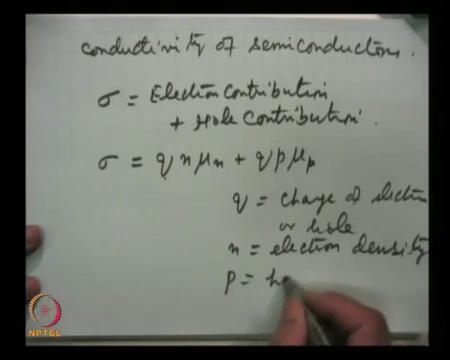 conductivity of semiconductors.
σ = Electron Contribution
+ Hole Contribution.
σ = q n μn + q p μp
q = charge of electron
or hole
n = electron density
p = ho
NPTEL